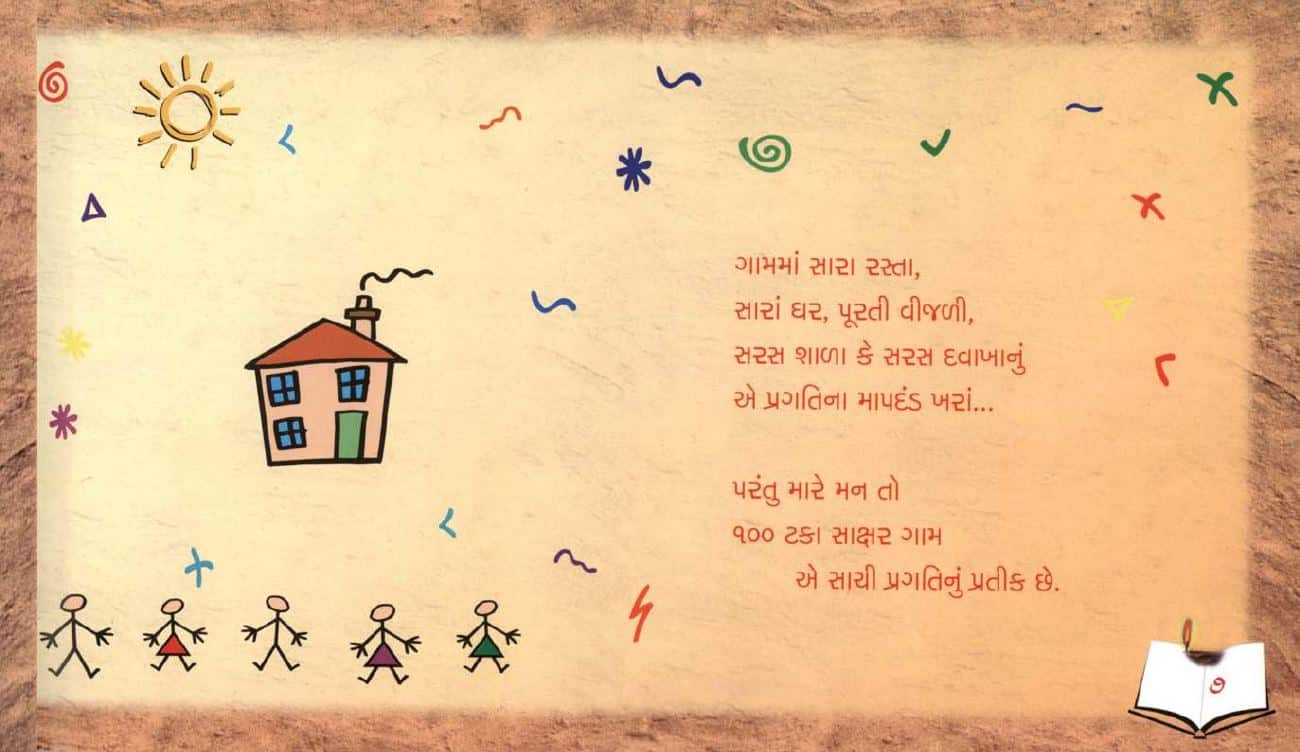 ગામમાં સારા રસ્તા,
સારાં ઘર, પૂરતી વીજળી,
સરસ શાળા કે સરસ દવાખાનું
એ પ્રગતિના માપદંડ ખરાં...
પરંતુ મારે મન તો
૧૦૦ ટકા સાક્ષર ગામ
એ સાચી પ્રગતિનું પ્રતીક છે.
૭